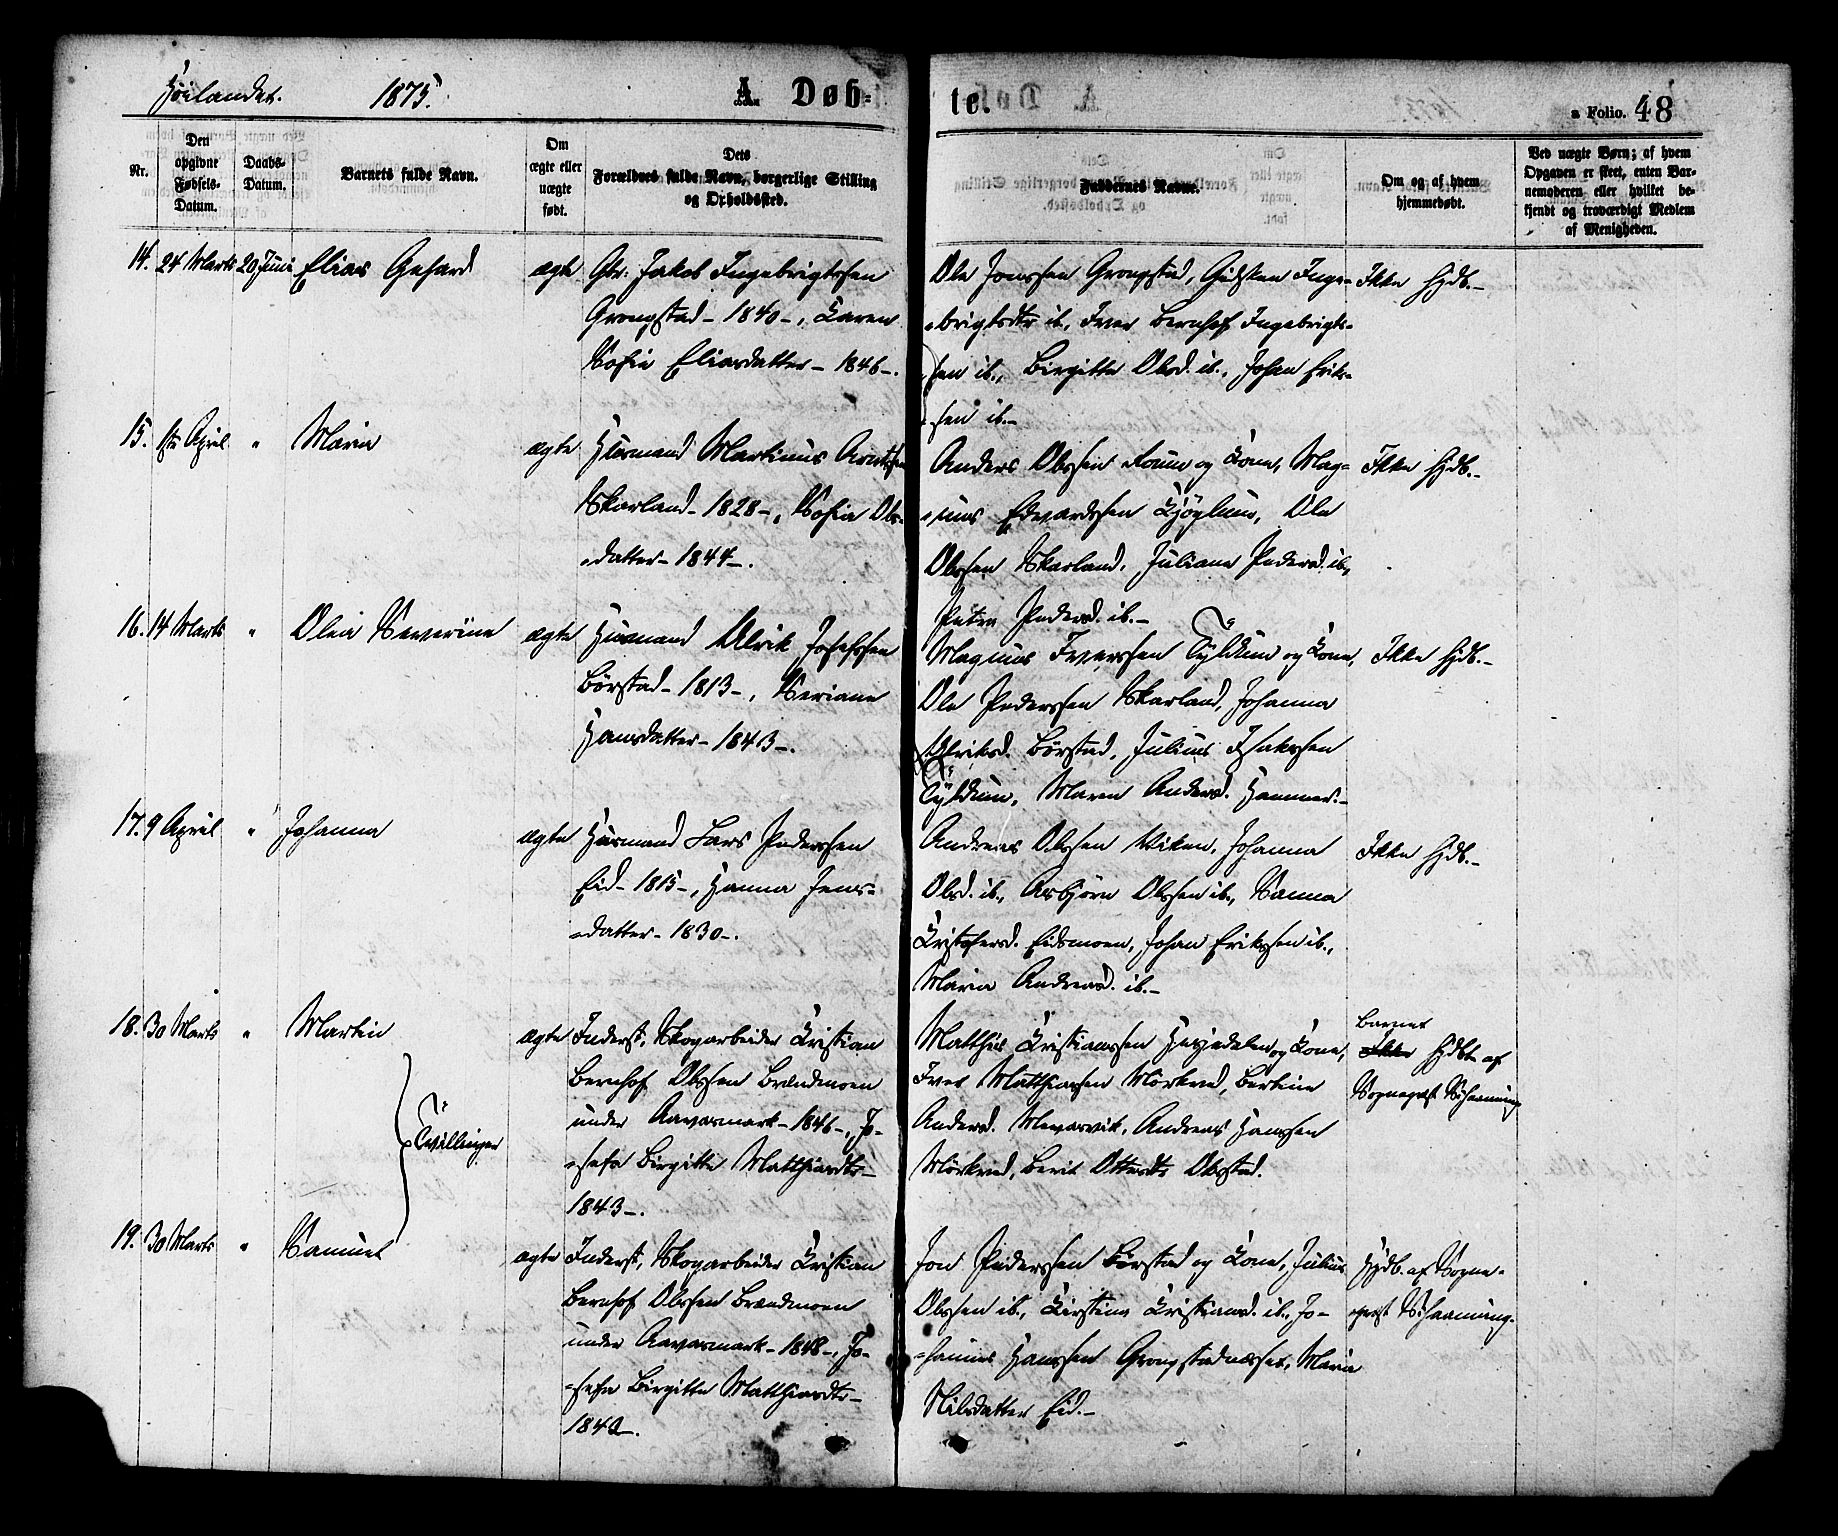 Höilandet. 1875. A. Døb-
te. a Folio. 48
Nr.
Den opgivne Fødsels-Datum.
Daabs-Datum.
Barnets fulde Navn.
Om ægte eller uægte født.
Dets Forældres fulde Navn, borgerlige Stilling og Opholdssted.
Faddernes Navne.
Om og af hvem hjemmedøbt.
Ved uægte Børn; af hvem Opgaven er skeet, enten Barnemoderen eller hvilket bekjendt og troværdigt Medlem af Menigheden.
14. 24 Marts 20 Juni Elias Gehard ægte Gbr. Jakob Ingebrigtssen
Grongstad - 1840 -, Karen
Sofie Eliasdatter - 1846 -.
Ole Jonssen Grongstad, Gidsken Inge-
-brigtsdtr ib., Iver Bernhof Ingebrigts-
-sen ib., Birgitte Olsd. ib., Johan Erik-
-sen ib.-
Ikke Hjdb.-
15. 1ste April " Maria ægte Husmand Martinus Arntssen
Skarland - 1828 -, Sofia Ols-
-datter - 1844 -.
Anders Olssen Romo og Kone, Mag-
-nus Edvardssen Kjöglum, Ole
Olssen Skarland, Juliane Pedersd. ib.,
Petra Pedersd. ib.-
Ikke Hjdb.-
16. 14 Marts " Olea Severine ægte Husmand Ulrik Josefssen
Börstad - 1813 -, Seriane
Hansdatter - 1843 -.
Magnus Iverssen Tyldum og Kone,
Ole Pederssen Skarland, Johanna
Ulriksd. Börstad, Julius Isakssen
Tyldum, Maren Andersd. Hammer.-
Ikke Hjdb.-
17. 9 April " Johanna ægte Husmand Lars Pederssen
Eid - 1815 -, Hanna Jens-
-datter - 1830 -.
Andreas Olssen Viken, Johanna
Olsd. ib., Asbjörn Olssen ib., Sanna
Kristofersd. Eidsmoen, Johan Erikssen ib.,
Maria Andreasd. ib.-
Ikke Hjdb.-
18. 30 Marts " Martin ægte Inderst, Skogarbeider Kristian
Bernhof Olssen Brændmoen
under Aavasmark - 1846 -, Jo-
-sefa Birgitte Matthiasdtr -
1843 -.
Tvillinger
Matthis Kristianssen Herjedalen og Kone,
Iver Matthiassen Mörkved, Bertine
Andersd. Mevasvik, Andreas Hanssen
Mörkved, Berit Ottersdtr Olsstad.
Barnet
Ikke Hjdbt af
Sognepræst Schanning
19. 30 Marts " Samuel ægte Inderst, Skogarbeider Kristian
Bernhof Olssen Brændmoen
under Aavasmark - 1848 -, Jo-
-sefa Birgitte Matthiasdtr -
1842 -.
Jon Pederssen Börstad og Kone, Julius
Olssen ib., Kirstine Kristiansd. ib., Jo-
-hannes Hanssen Grongstadnæsset, Maria
Nilsdatter Eid.-
Hjdb. af Sogne-
-præst Schanning.